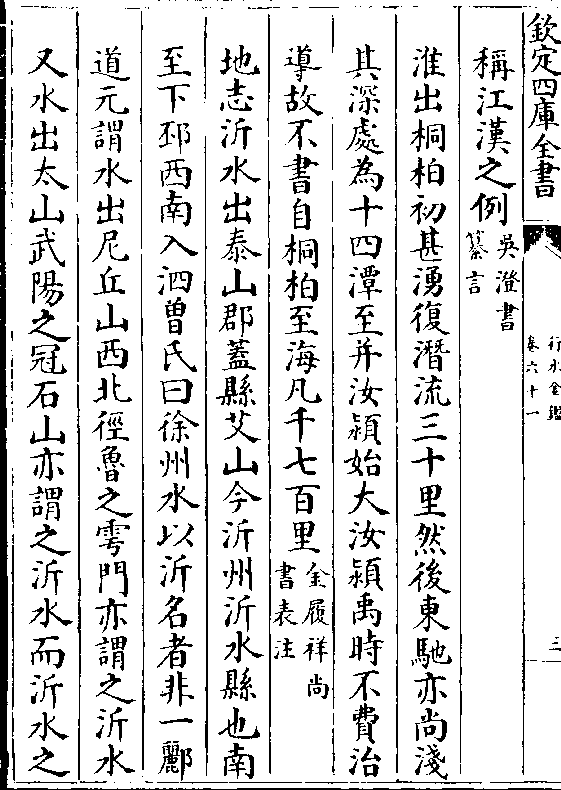 欽定四庫全書
行水金鑑
卷六十一
三
稱江漢之例吳澄書纂言
淮出桐柏初甚湧復潛流三十里然後東馳亦尚淺
其深處為十四潭至并汝潁始大汝潁禹時不費治
導故不書自桐柏至海凡千七百里金履祥尚書表注
地志沂水出泰山郡蓋縣艾山今沂州沂水縣也南
至下邳西南入泗曾氏曰徐州水以沂名者非一酈
道元謂水出尼丘山西北徑魯之雩門亦謂之沂水
又水出太山武陽之冠石山亦謂之沂水而沂水之